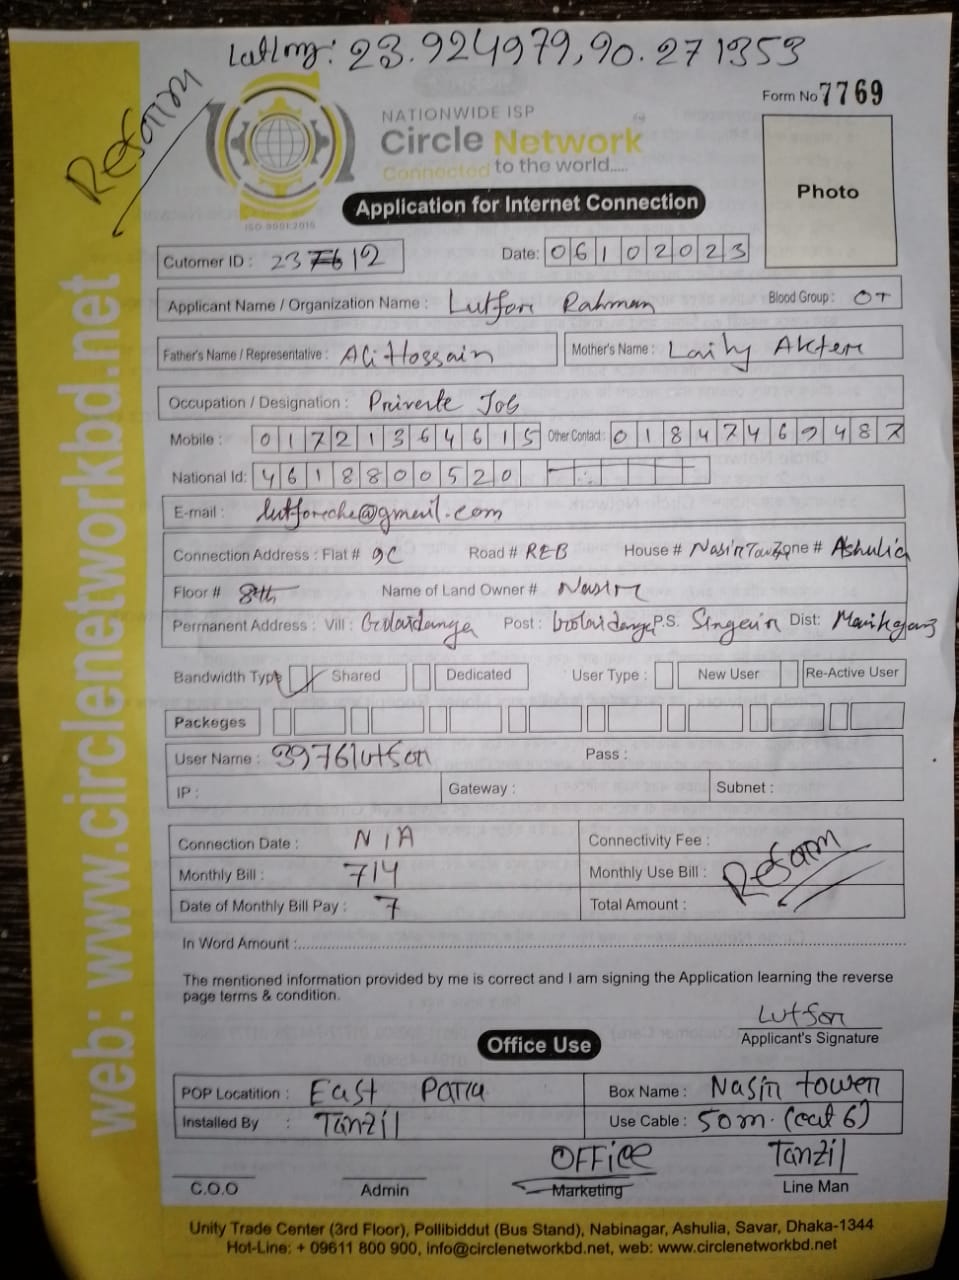 Lat lng: 23.924979,90.271353
Reform
Form No 7769
NATIONWIDE ISP
Circle Network
Connected to the world.....
ISO 9001:2015
Photo
Application for Internet Connection
Cutomer ID : 237612
Date: 06102023
Applicant Name / Organization Name : Lutfor Rahman Blood Group : O+
Father's Name / Representative : Ali Hossain Mother's Name : Laily Akter
Occupation / Designation : Private Job
Mobile : 01721364615 Other Contact : 01847469487
National Id: 4618800520
E-mail : lutforeche@gmail.com
Connection Address : Flat # 9C Road # REB House # Nasir Tower Zone # Ashulia
Floor # 8th Name of Land Owner # Nasir
Permanent Address : Vill : Golaidanga Post : Golaidanga P.S. Singair Dist: Manikganj
Bandwidth Type Shared Dedicated User Type : New User Re-Active User
Packeges
User Name : 3976lutfor Pass :
IP : Gateway : Subnet :
Connection Date : N/A Connectivity Fee :
Monthly Bill : 714 Monthly Use Bill : Reform
Date of Monthly Bill Pay : 7 Total Amount :
In Word Amount :
The mentioned information provided by me is correct and I am signing the Application learning the reverse
page terms & condition.
Lutfor
Applicant's Signature
Office Use
POP Locatition : East Para Box Name : Nasir tower
Installed By : Tanzil Use Cable : 50m. (cat 6)
OFFice Tanzil
C.O.O Admin Marketing Line Man
Unity Trade Center (3rd Floor), Pollibiddut (Bus Stand), Nabinagar, Ashulia, Savar, Dhaka-1344
Hot-Line: + 09611 800 900, info@circlenetworkbd.net, web: www.circlenetworkbd.net
web: www.circlenetworkbd.net